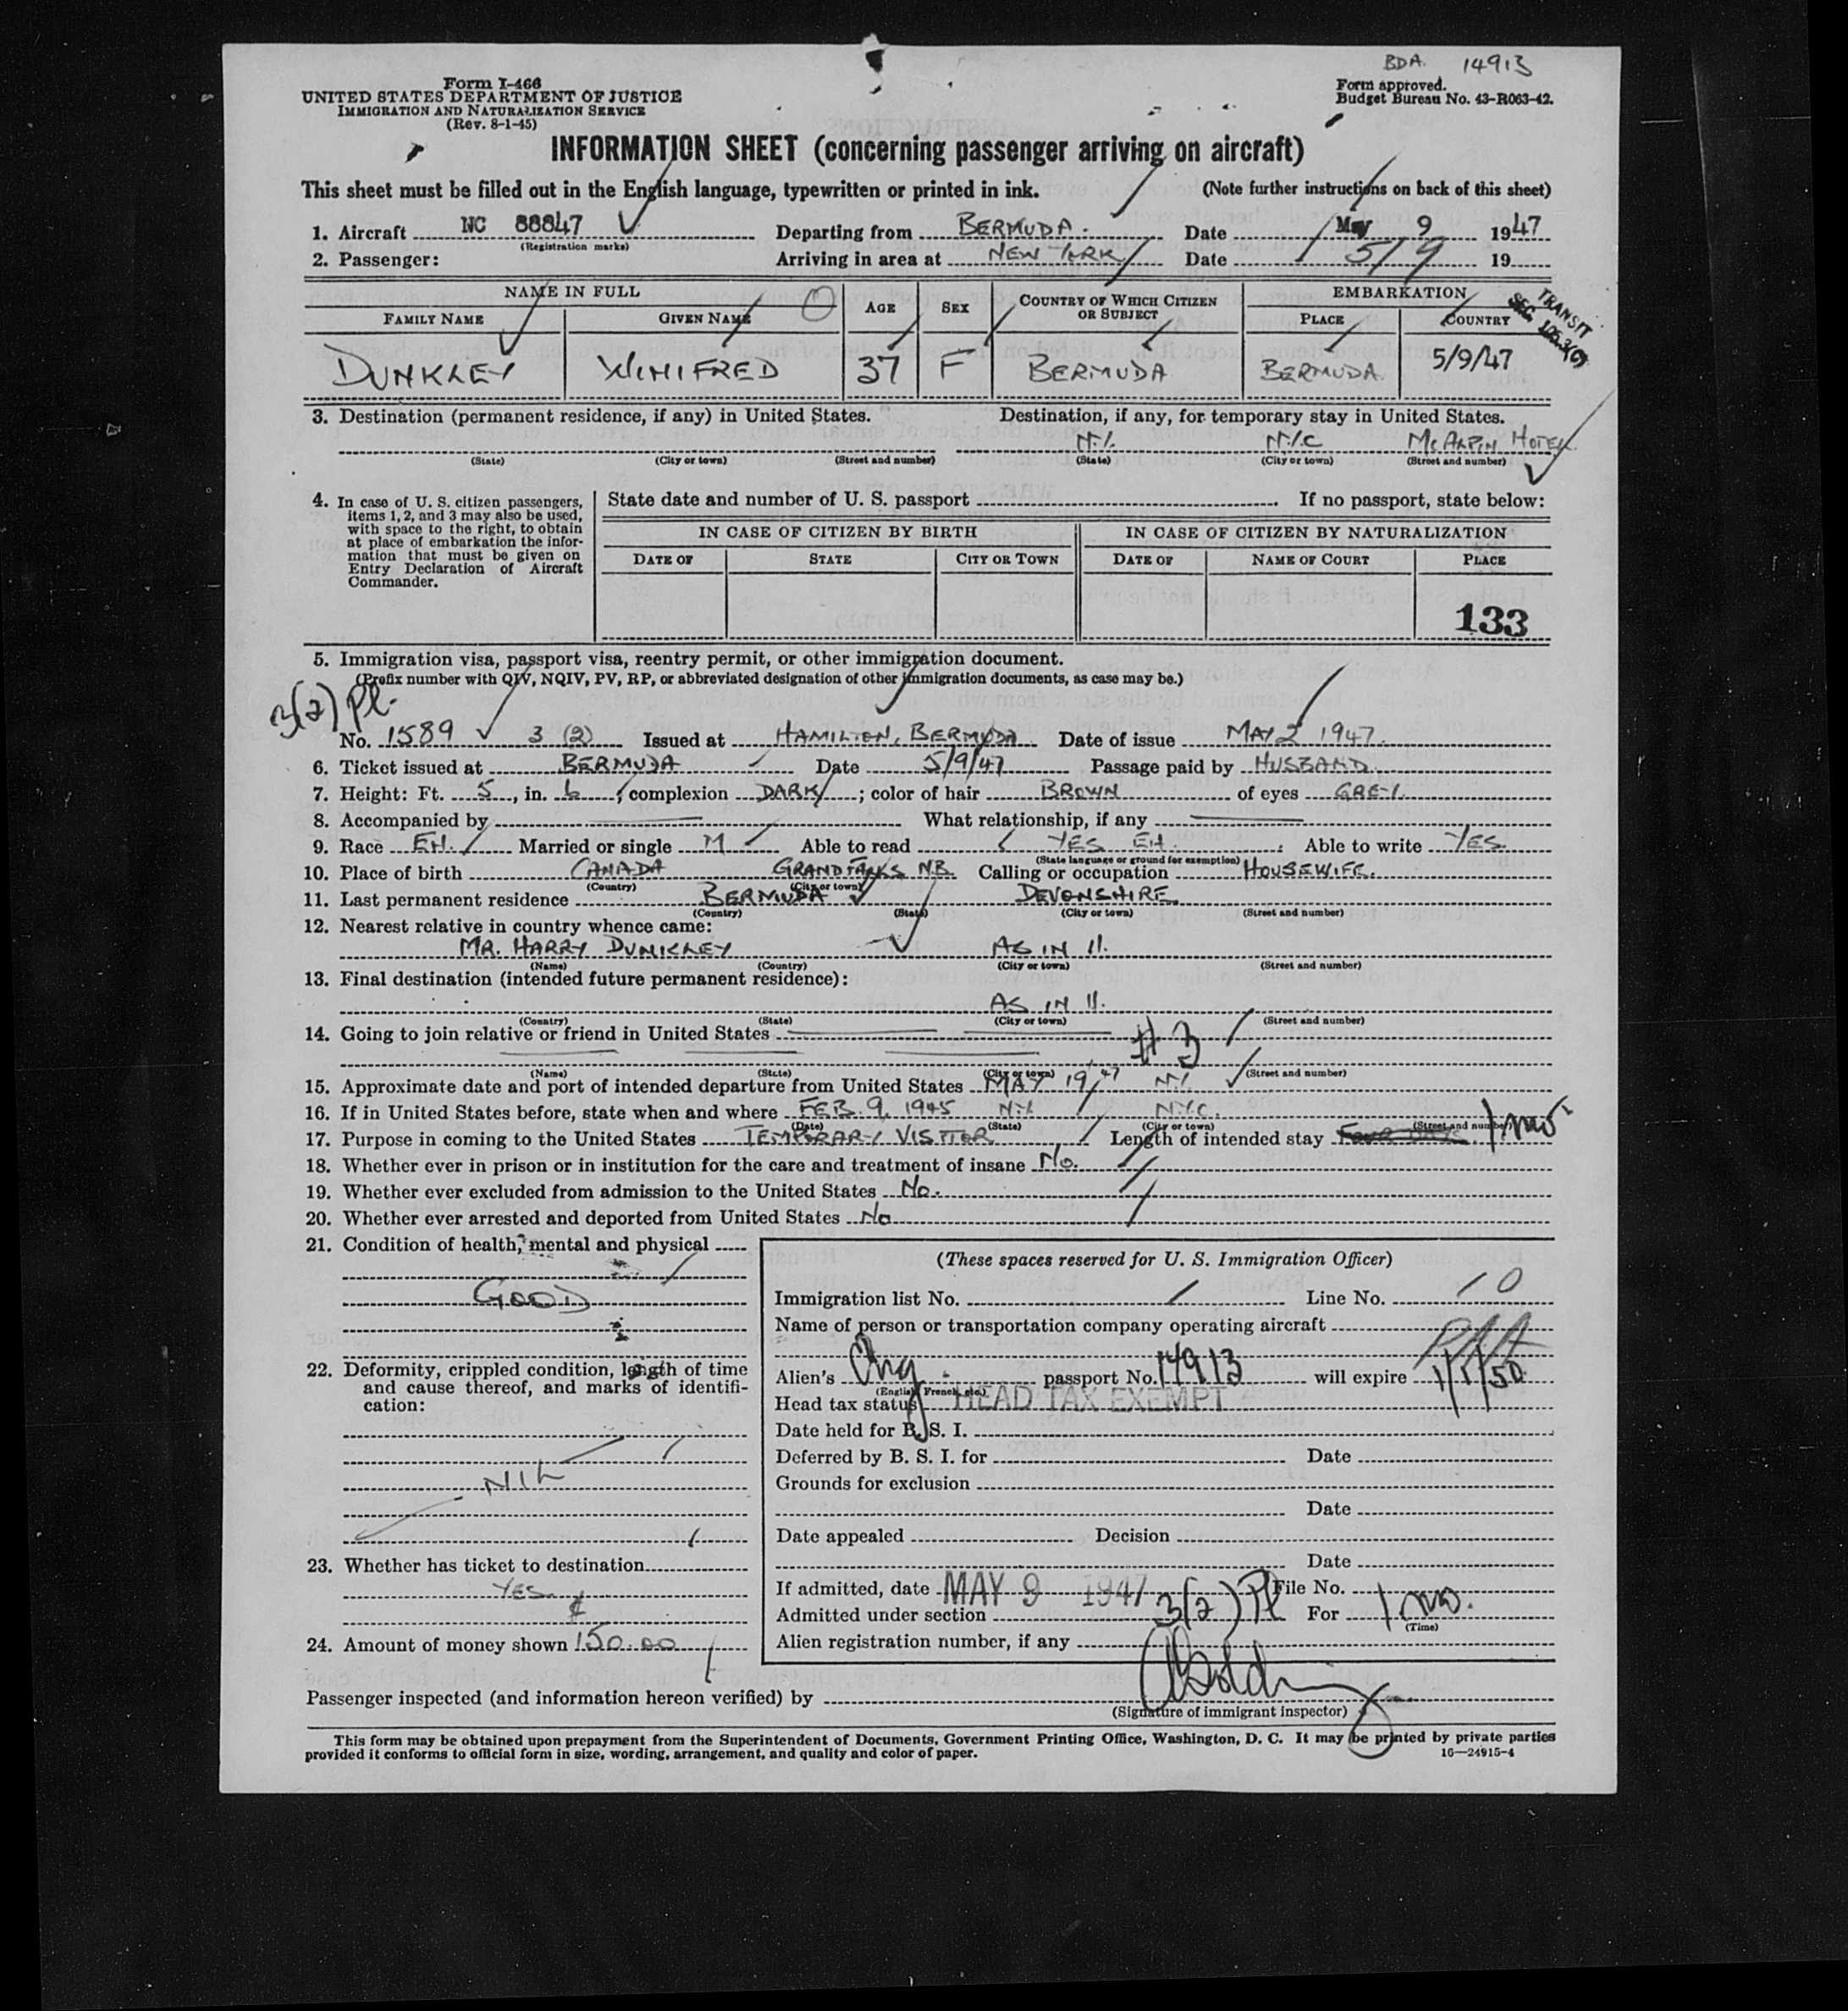 BDA. 14913
Form I-466
UNITED STATES DEPARTMENT OF JUSTICE
IMMIGRATION AND NATURALIZATION SERVICE
(Rev. 8-1-45)
Form approved.
Budget Bureau No. 43-R063-42.
INFORMATION SHEET (concerning passenger arriving on aircraft)
This sheet must be filled out in the English language, typewritten or printed in ink. (Note further instructions on back of this sheet)
1. Aircraft NC 88847 Departing from BERMUDA. Date May 9 1947
(Registration marks)
2. Passenger: Arriving in area at NEW YORK Date 5/9 19
NAME IN FULL AGE SEX COUNTRY OF WHICH CITIZEN OR SUBJECT EMBARKATION
FAMILY NAME GIVEN NAME PLACE COUNTRY
TRANSIT
DUNKLEY WINIFRED 37 F BERMUDA BERMUDA 5/9/47
3. Destination (permanent residence, if any) in United States. Destination, if any, for temporary stay in United States.
N.Y. N.Y.C MCALPIN HOTEL
(State) (City or town) (Street and number) (State) (City or town) (Street and number)
4. In case of U. S. citizen passengers, items 1, 2, and 3 may also be used, with space to the right, to obtain at place of embarkation the information that must be given on Entry Declaration of Aircraft Commander.
State date and number of U. S. passport If no passport, state below:
IN CASE OF CITIZEN BY BIRTH IN CASE OF CITIZEN BY NATURALIZATION
DATE OF STATE CITY OR TOWN DATE OF NAME OF COURT PLACE
133
5. Immigration visa, passport visa, reentry permit, or other immigration document.
(Prefix number with QIV, NQIV, PV, RP, or abbreviated designation of other immigration documents, as case may be.)
3(2) Pl.
No. 1589 3 (2) Issued at HAMILTON, BERMUDA Date of issue MAY 2 1947.
6. Ticket issued at BERMUDA Date 5/9/47 Passage paid by HUSBAND
7. Height: Ft. 5, in. 6; complexion DARK; color of hair BROWN of eyes GREY.
8. Accompanied by What relationship, if any
9. Race EH. Married or single M Able to read YES EH. Able to write YES
(State language or ground for exemption)
10. Place of birth CANADA GRAND FALLS N.B. Calling or occupation HOUSEWIFE.
(Country) (City or town)
11. Last permanent residence BERMUDA DEVONSHIRE
(Country) (State) (City or town) (Street and number)
12. Nearest relative in country whence came:
MR. HARRY DUNKLEY AS IN 11.
(Name) (Country) (City or town) (Street and number)
13. Final destination (intended future permanent residence):
AS IN 11.
(Country) (State) (City or town) (Street and number)
14. Going to join relative or friend in United States
#3
(Name) (State) (City or town) (Street and number)
15. Approximate date and port of intended departure from United States MAY 19/47 N.Y.
16. If in United States before, state when and where FEB. 9, 1945 N.Y. N.Y.C.
(Date) (State) (City or town) (Street and number)
17. Purpose in coming to the United States TEMPORARY VISITOR Length of intended stay 1 mo
18. Whether ever in prison or in institution for the care and treatment of insane No.
19. Whether ever excluded from admission to the United States No.
20. Whether ever arrested and deported from United States No
21. Condition of health, mental and physical
GOOD
22. Deformity, crippled condition, length of time and cause thereof, and marks of identification:
NIL
23. Whether has ticket to destination
YES
24. Amount of money shown 150.00
(These spaces reserved for U. S. Immigration Officer)
Immigration list No. Line No. 10
Name of person or transportation company operating aircraft
PAA
Alien's Eng. passport No. 14913 will expire 1/1/50
(English, French, etc.)
Head tax status HEAD TAX EXEMPT
Date held for B. S. I.
Deferred by B. S. I. for Date
Grounds for exclusion
Date
Date appealed Decision
Date
If admitted, date MAY 9 1947 File No.
Admitted under section 3(2) Pl For 1 mo.
(Time)
Alien registration number, if any
Passenger inspected (and information hereon verified) by
(Signature of immigrant inspector)
This form may be obtained upon prepayment from the Superintendent of Documents, Government Printing Office, Washington, D. C. It may be printed by private parties
provided it conforms to official form in size, wording, arrangement, and quality and color of paper. 16—24915-4